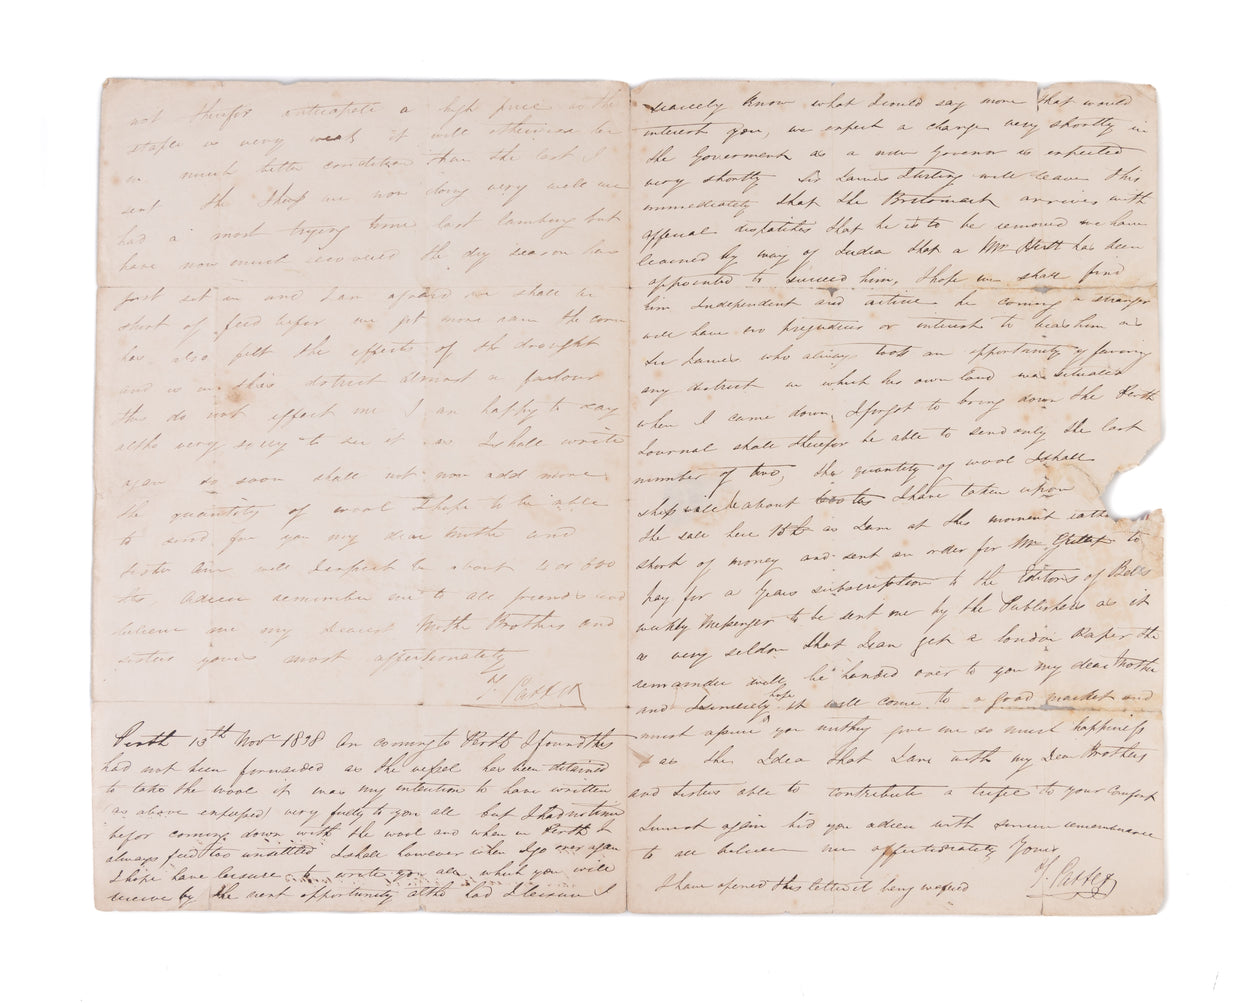 not therefor anticipate a high price as the
staple is very weak it will otherwise be
in much better condition than the last I
sent the Sheep are now doing very well we
had a most trying time last lambing but
have now much recovered the dry season has
just set in and I am afraid we shall be
short of feed befor we get more rain the corn
has also felt the effects of the drought
and is in this district almost a failour
this do not effect me I am happy to say
altho very sorry to see it as I shall write
again so soon shall not now add more
the quantity of wool I hope to be able
to send for you my dear Mother and
sister Ann will I expect be about 4 or 600
lbs, adieu remember me to all friends and
believe me my dearest Mother Brothers and
sisters yours most affectionately
Perth 13th Novr 1838 On coming to Perth I found this
had not been forwarded as the vessel has been detained
to take the wool it was my intention to have written
(as above expressed) very fully to you all but I had no time
befor coming down with the wool and when in Perth I
always feel too unsettled I shall however when I go over again
I hope have leisure to write you all which you will
receive by the next opportunity altho had I leisure I
scarcely know what I could say more that would
interest you, we expect a change very shortly in
the Goverment as a new Govenor is expected
very shortly Sir James Stirling will leave this
immediately that the Britomart arrives with
official dispatches that he is to be removed we have
learned by way of India that a Mr Hutt has been
appointed to succeed him, I hope we shall find
him Independent and active he coming a stranger
will have no prejudices or interest to bias him as
Sir James who always took an opportunity of favoring
any district in which his own land was situated
when I came down, I forgot to bring down the Perth
Journal shall therefor be able to send only the last
number of two, the quantity of wool I shall
ship will be about I have taken upon
the sale here 15 as I am at this moment rather
short of money and sent an order for Mr to
pay for a Years subscription to the Editors of Bells
weekly Messenger to be sent me by the Publishers as it
is very seldom that I can get a London Paper the
remainder will be handed over to you my dear Mother
and I sincerely hope it will come to a good market and
must assure you nothing give me so much happiness
as the Idea that I am with my Dear Brothers
and Sisters able to contribute a trifle to your Comfort
I must again bid you adieu with sincere remembrance
to all believe me affectionately Yours
I have opened this letter it being wafered